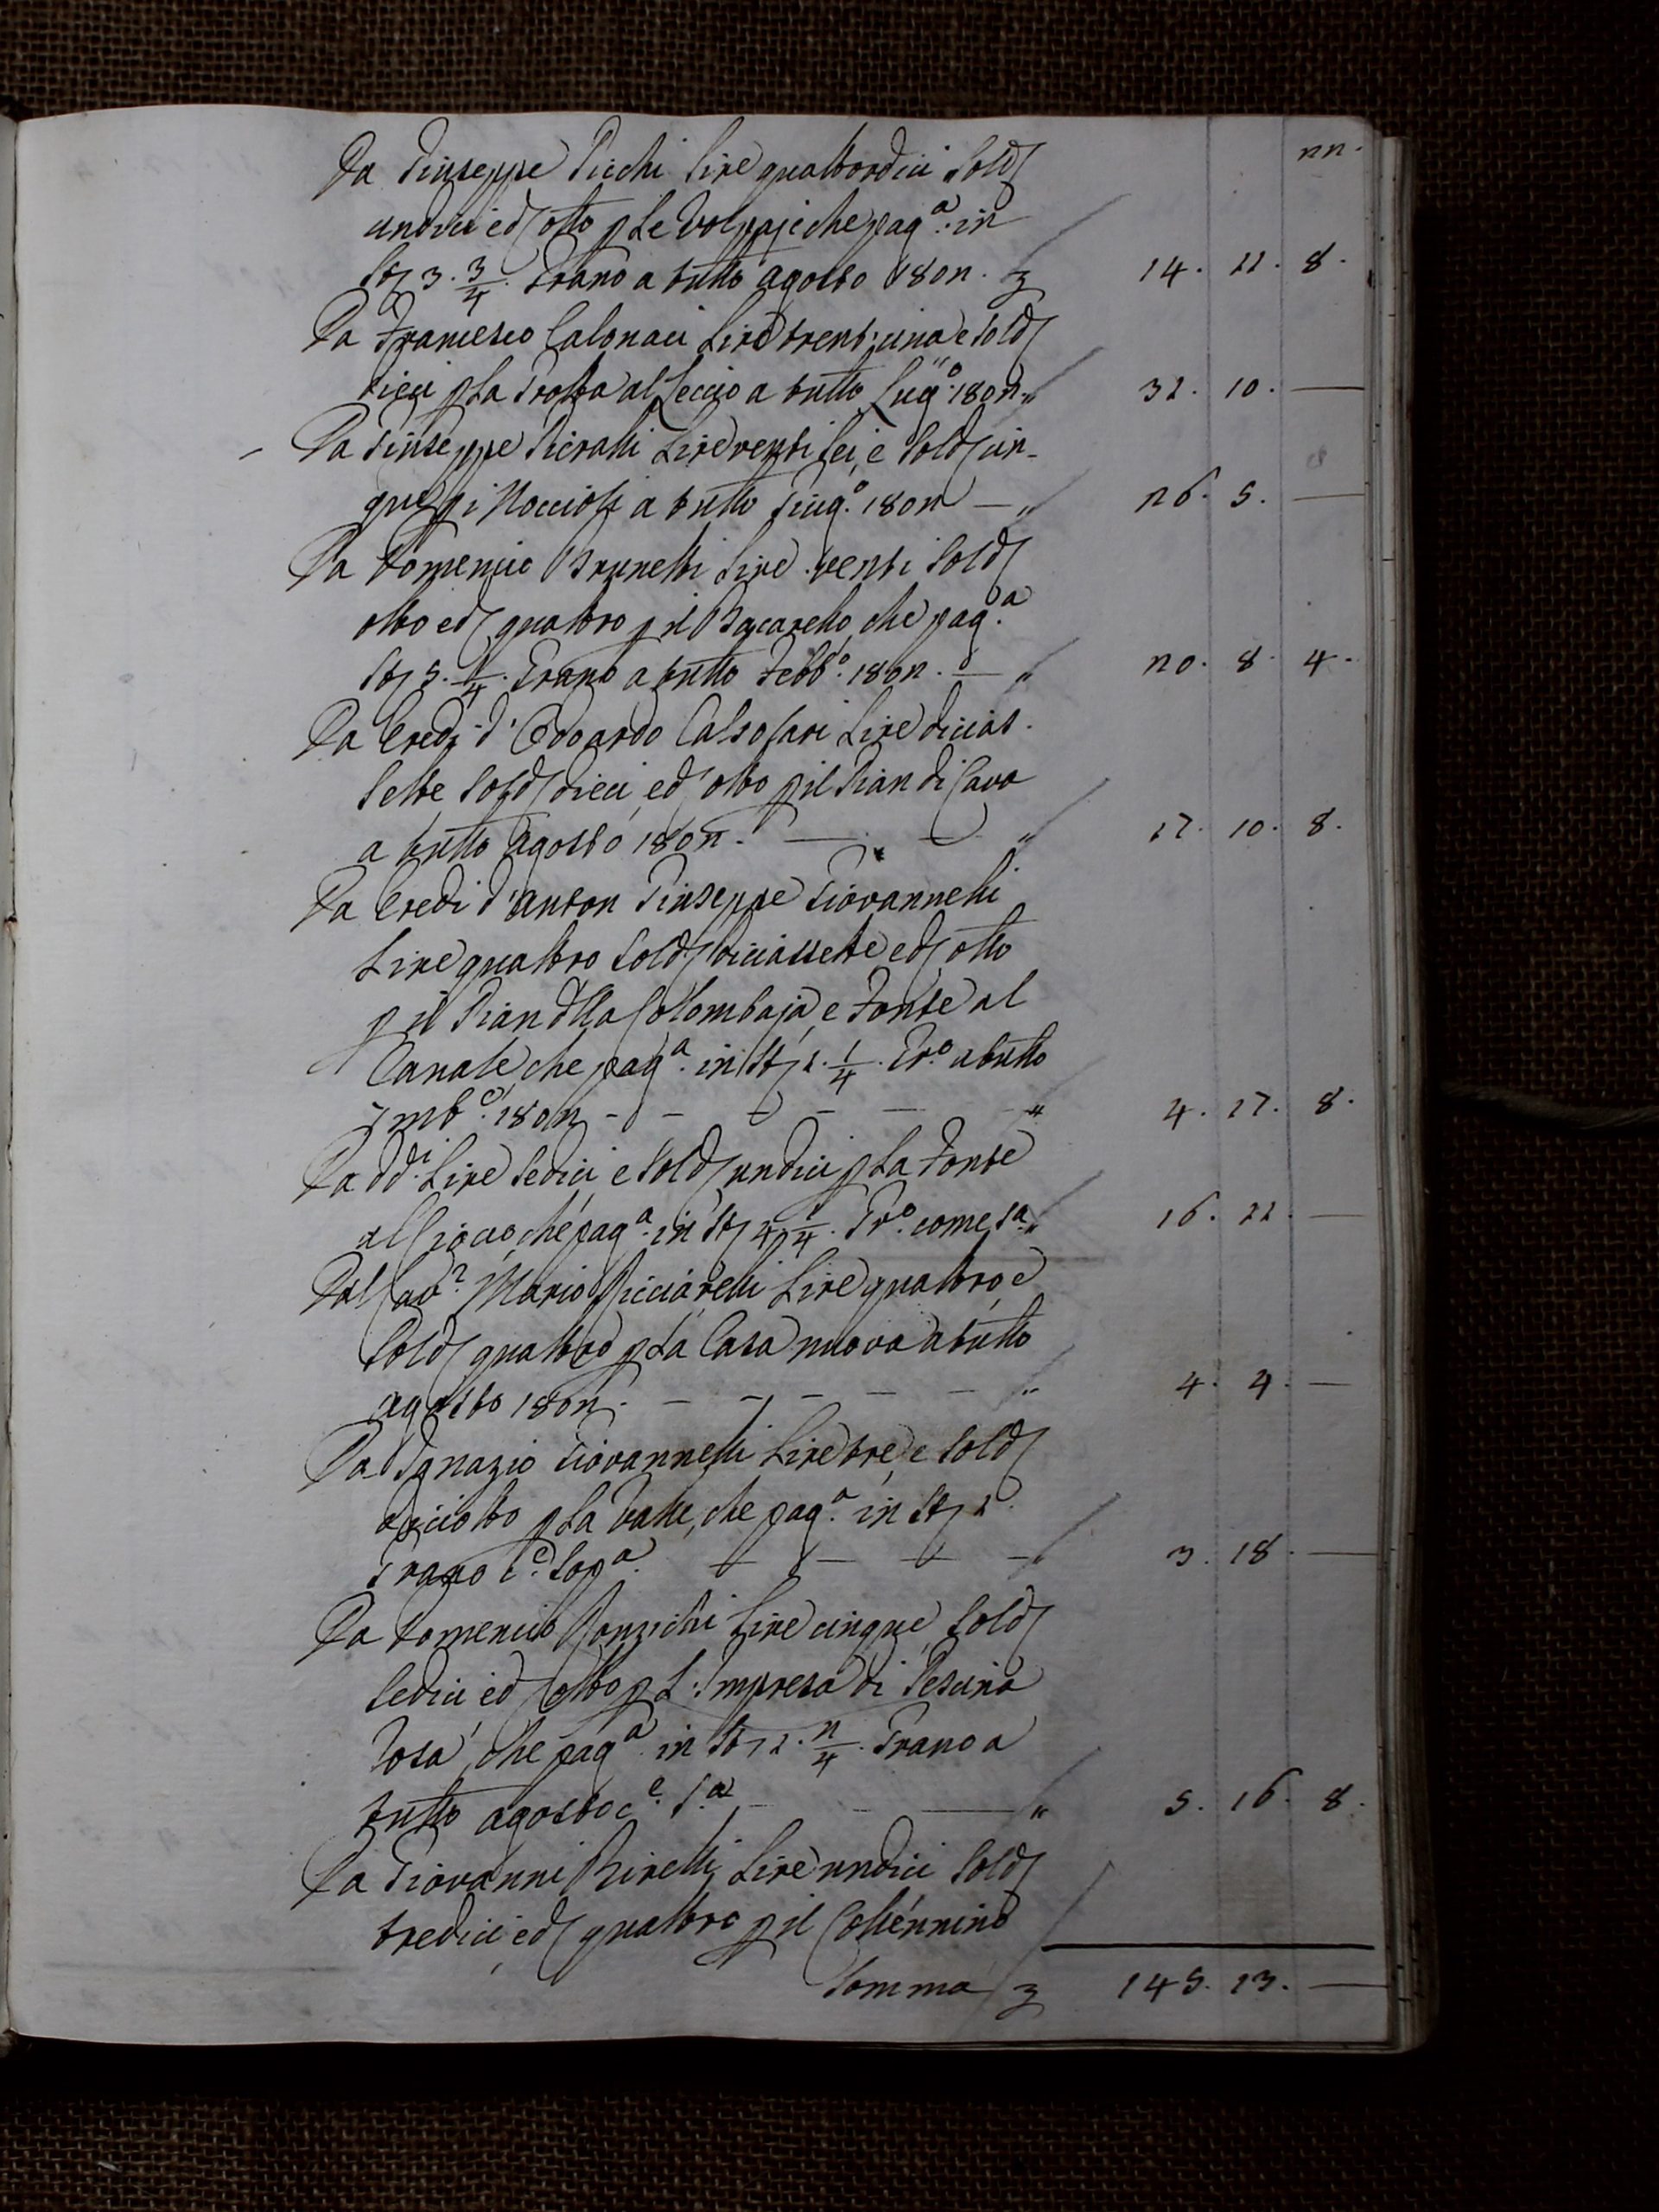 22.
Da Giuseppe Picchi Lire quattordici Sold
undici ed otto p Le Volpaje che pag.a in
St 3. 3/4. Grano a tutto agosto 1802. 14. 11. 8.
Da Francesco Calonaci Lire trent'una e Sold
dieci p La Grotta al Leccio a tutto Lug.o 1802 " 31. 10. —
Da Giuseppe Pieralli Lire venti sei, e Sold cin-
que p i Noccioli a tutto Giug.o 1802 — " 26. 5. —
Da Domenico Brunetti Lire venti Sold
otto ed quattro p il che pag.a
St 5. 1/4. Grano a tutto Febb.o 1802. — " 20. 8. 4.
Da Eredi d'Edoardo Calsolari Lire dicias-
sette Sold dieci, ed otto p il Pian di Cava
a tutto Agosto 1802. — — " 17. 10. 8.
Da Eredi d'Anton Giuseppe Giovannelli
Lire quattro Sold diciassette ed otto
p il Pian dlla Colombaja, e Fonte al
Canale, che pag.a in St 1. 1/4. Gr.o a tutto
7mb.e 1802 - - - - — " 4. 17. 8.
Da dd.i Lire Sedici e Sold undici p La Fonte
al che pag.a in St 4 1/4. Gr.o come s.a " 16. 11. —
Dal Cav.r Mario Ricciarelli Lire quattro, e
Sold quattro p La Casa nuova a tutto
agosto 1802. — — — — — " 4. 4. —
Da Ignazio Giovannelli Lire tre, e Sold
diciotto p La Valle, che pag.a in St 1.
Grano c.e Sop.a — — — — " 3. 18. —
Da Domenico Ronzichi Lire cinque, Sold
Sedici ed otto p L'Impresa di Pescina
Rosa, che pag.a in St 1. 2/4. Grano a
tutto agosto c.e s.a — — " 5. 16. 8.
Da Giovanni Lire undici Sold
tredici, ed quattro p il Collennino
Somma 145. 13. —